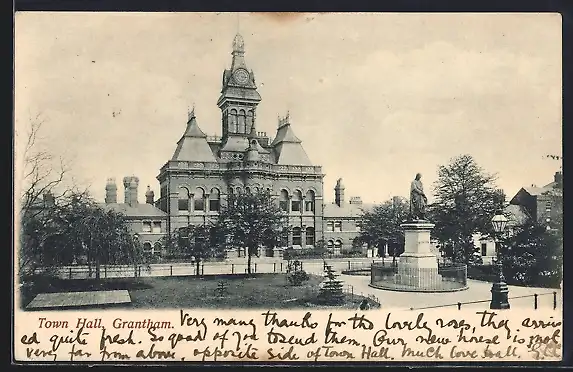 Town Hall, Grantham. Very many thanks for the lovely roses, they arriv
ed quite fresh. So good of you to send them, Our new house is not
very far from above, opposite side of Town Hall. Much love to all.